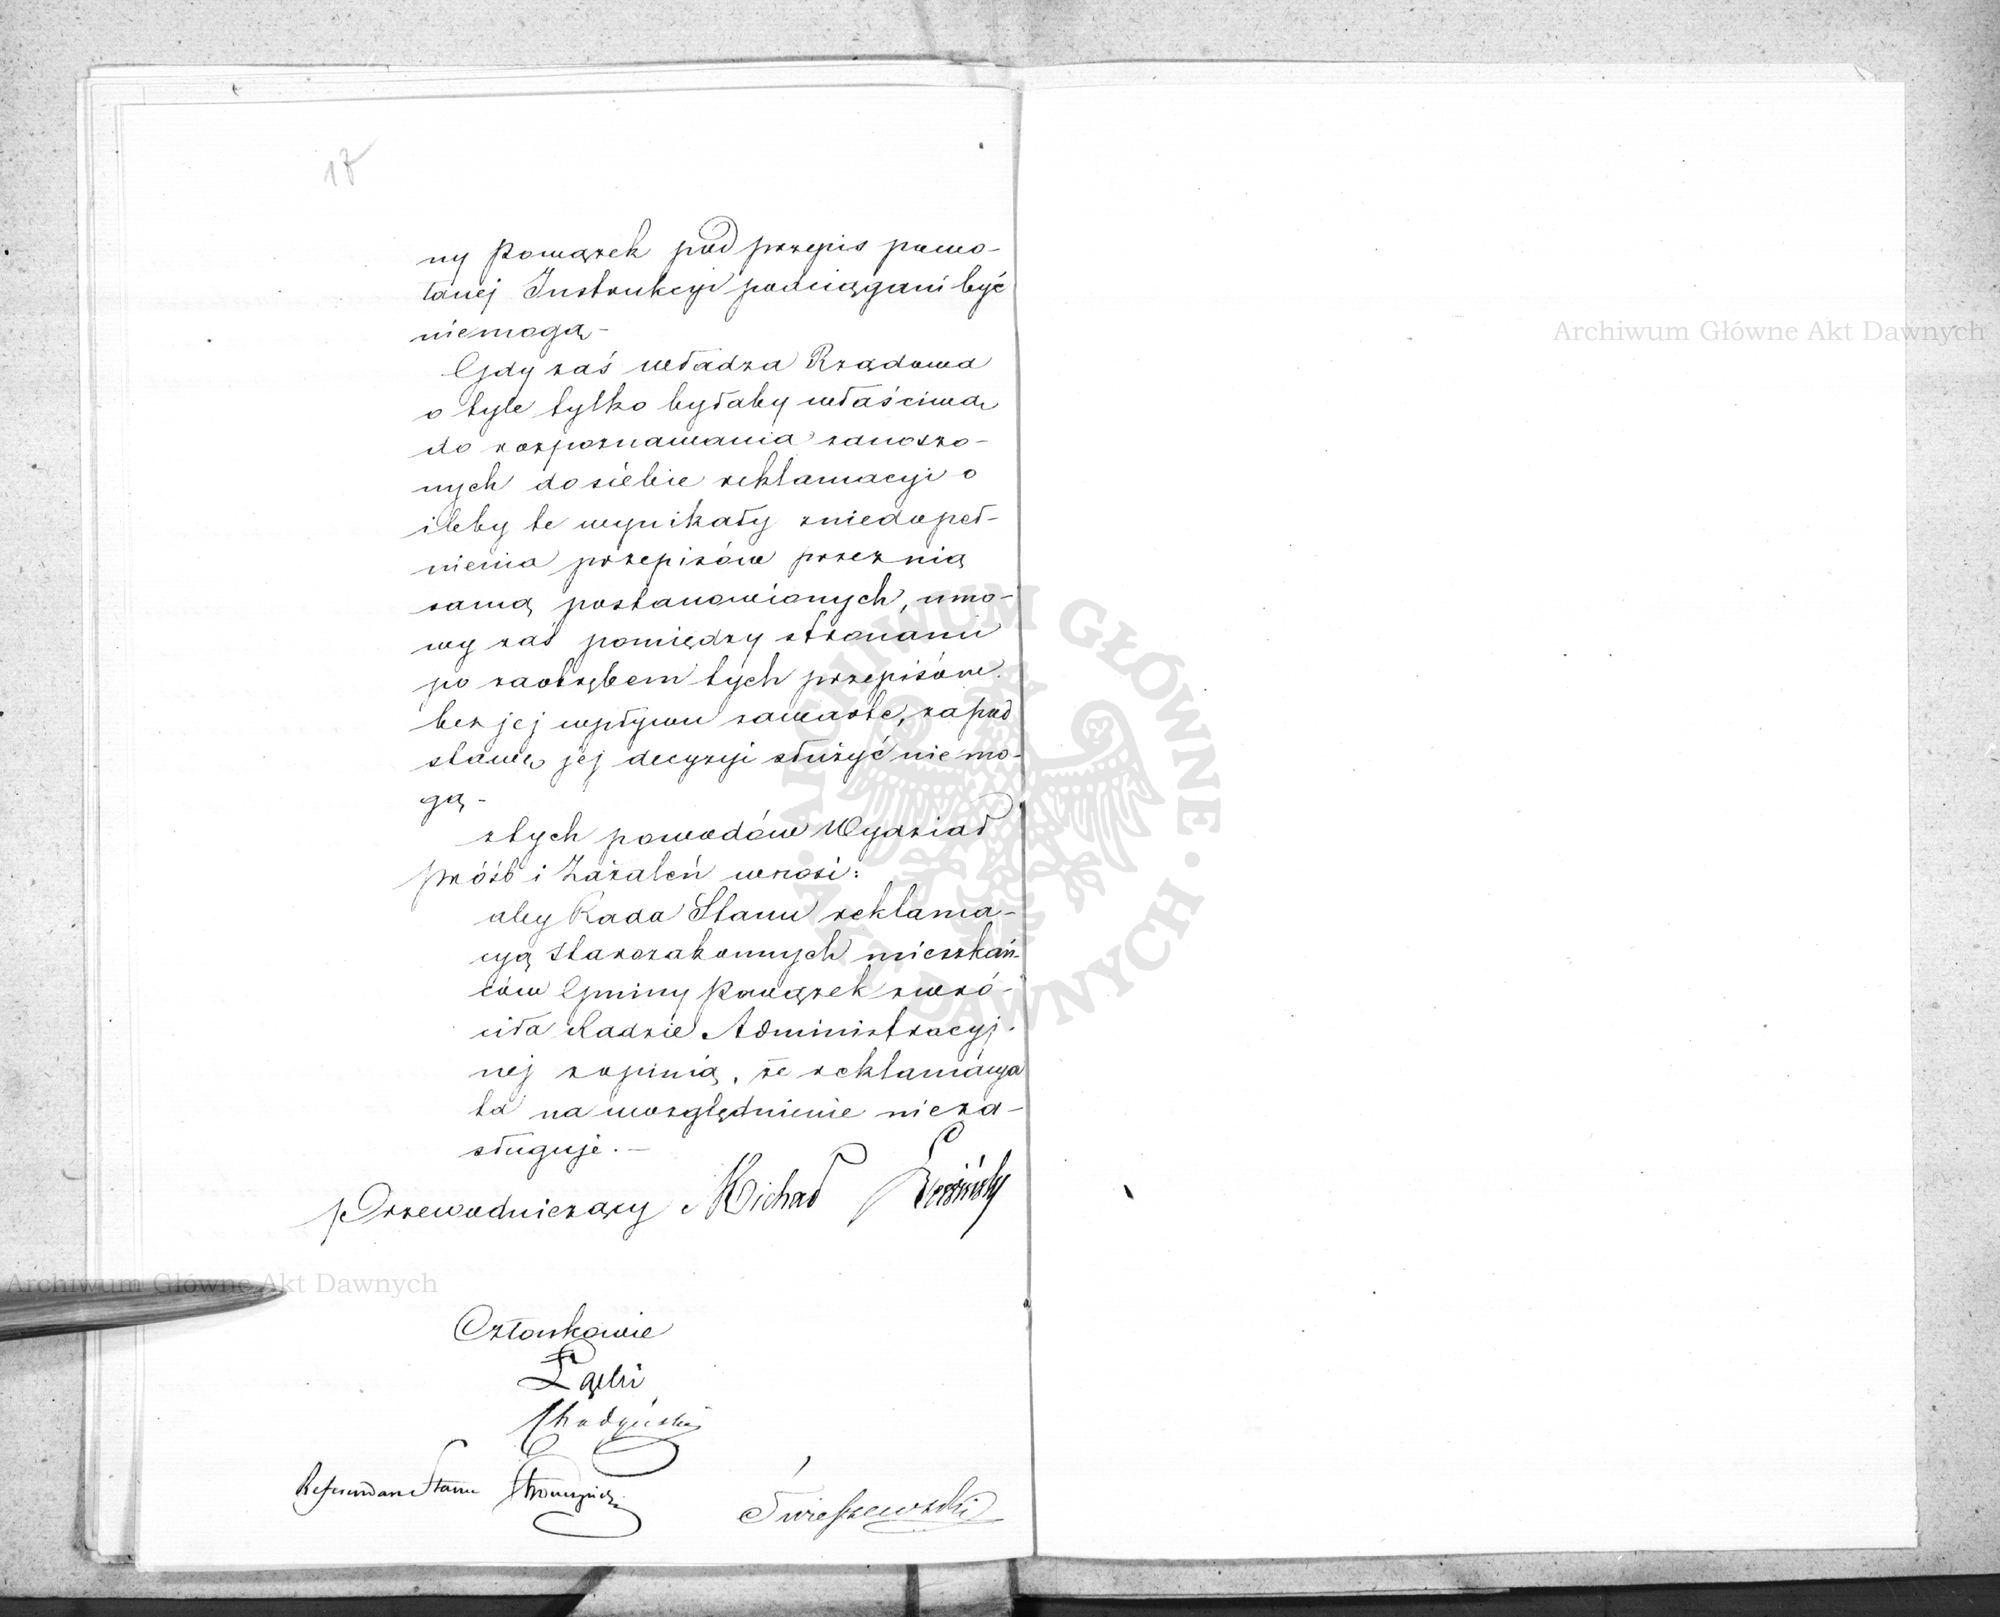 17
ny Powązek pod przepis powo-
łanej Instrukcyi podciągani być
niemogą -
Gdy zaś władza Rządowa
o tyle tylko byłaby właściwą
do rozpoznawania zanoszo-
nych do siebie reklamacyi o
ileby te wynikały zniedopeł-
nienia przepisów przez nią
samą postanowionych, umo-
wy zaś pomiędzy stronami
po za obrębem tych przepisów
bez jej wpływu zawarte, za pod
stawę jej decyzyi służyć nie mo-
gą -
z tych powodów Wydział
próśb i Zażaleń wnosi:
aby Rada Stanu reklama-
cyą starozakonnych mieszkań-
ców Gminy Powązek zwró-
ciła Radzie Administracyj-
nej z opinią, że reklamacya
ta na uwzględnienie nieza-
sługuje. -
Przewodniczący Michał
Członkowie
Łąski
Chodyński
Referendarz Stanu Stronczyński
Świeszewski
Archiwum Główne Akt Dawnych
Archiwum Główne Akt Dawnych
ARCHIWUM GŁÓWNE · AKT DAWNYCH ·